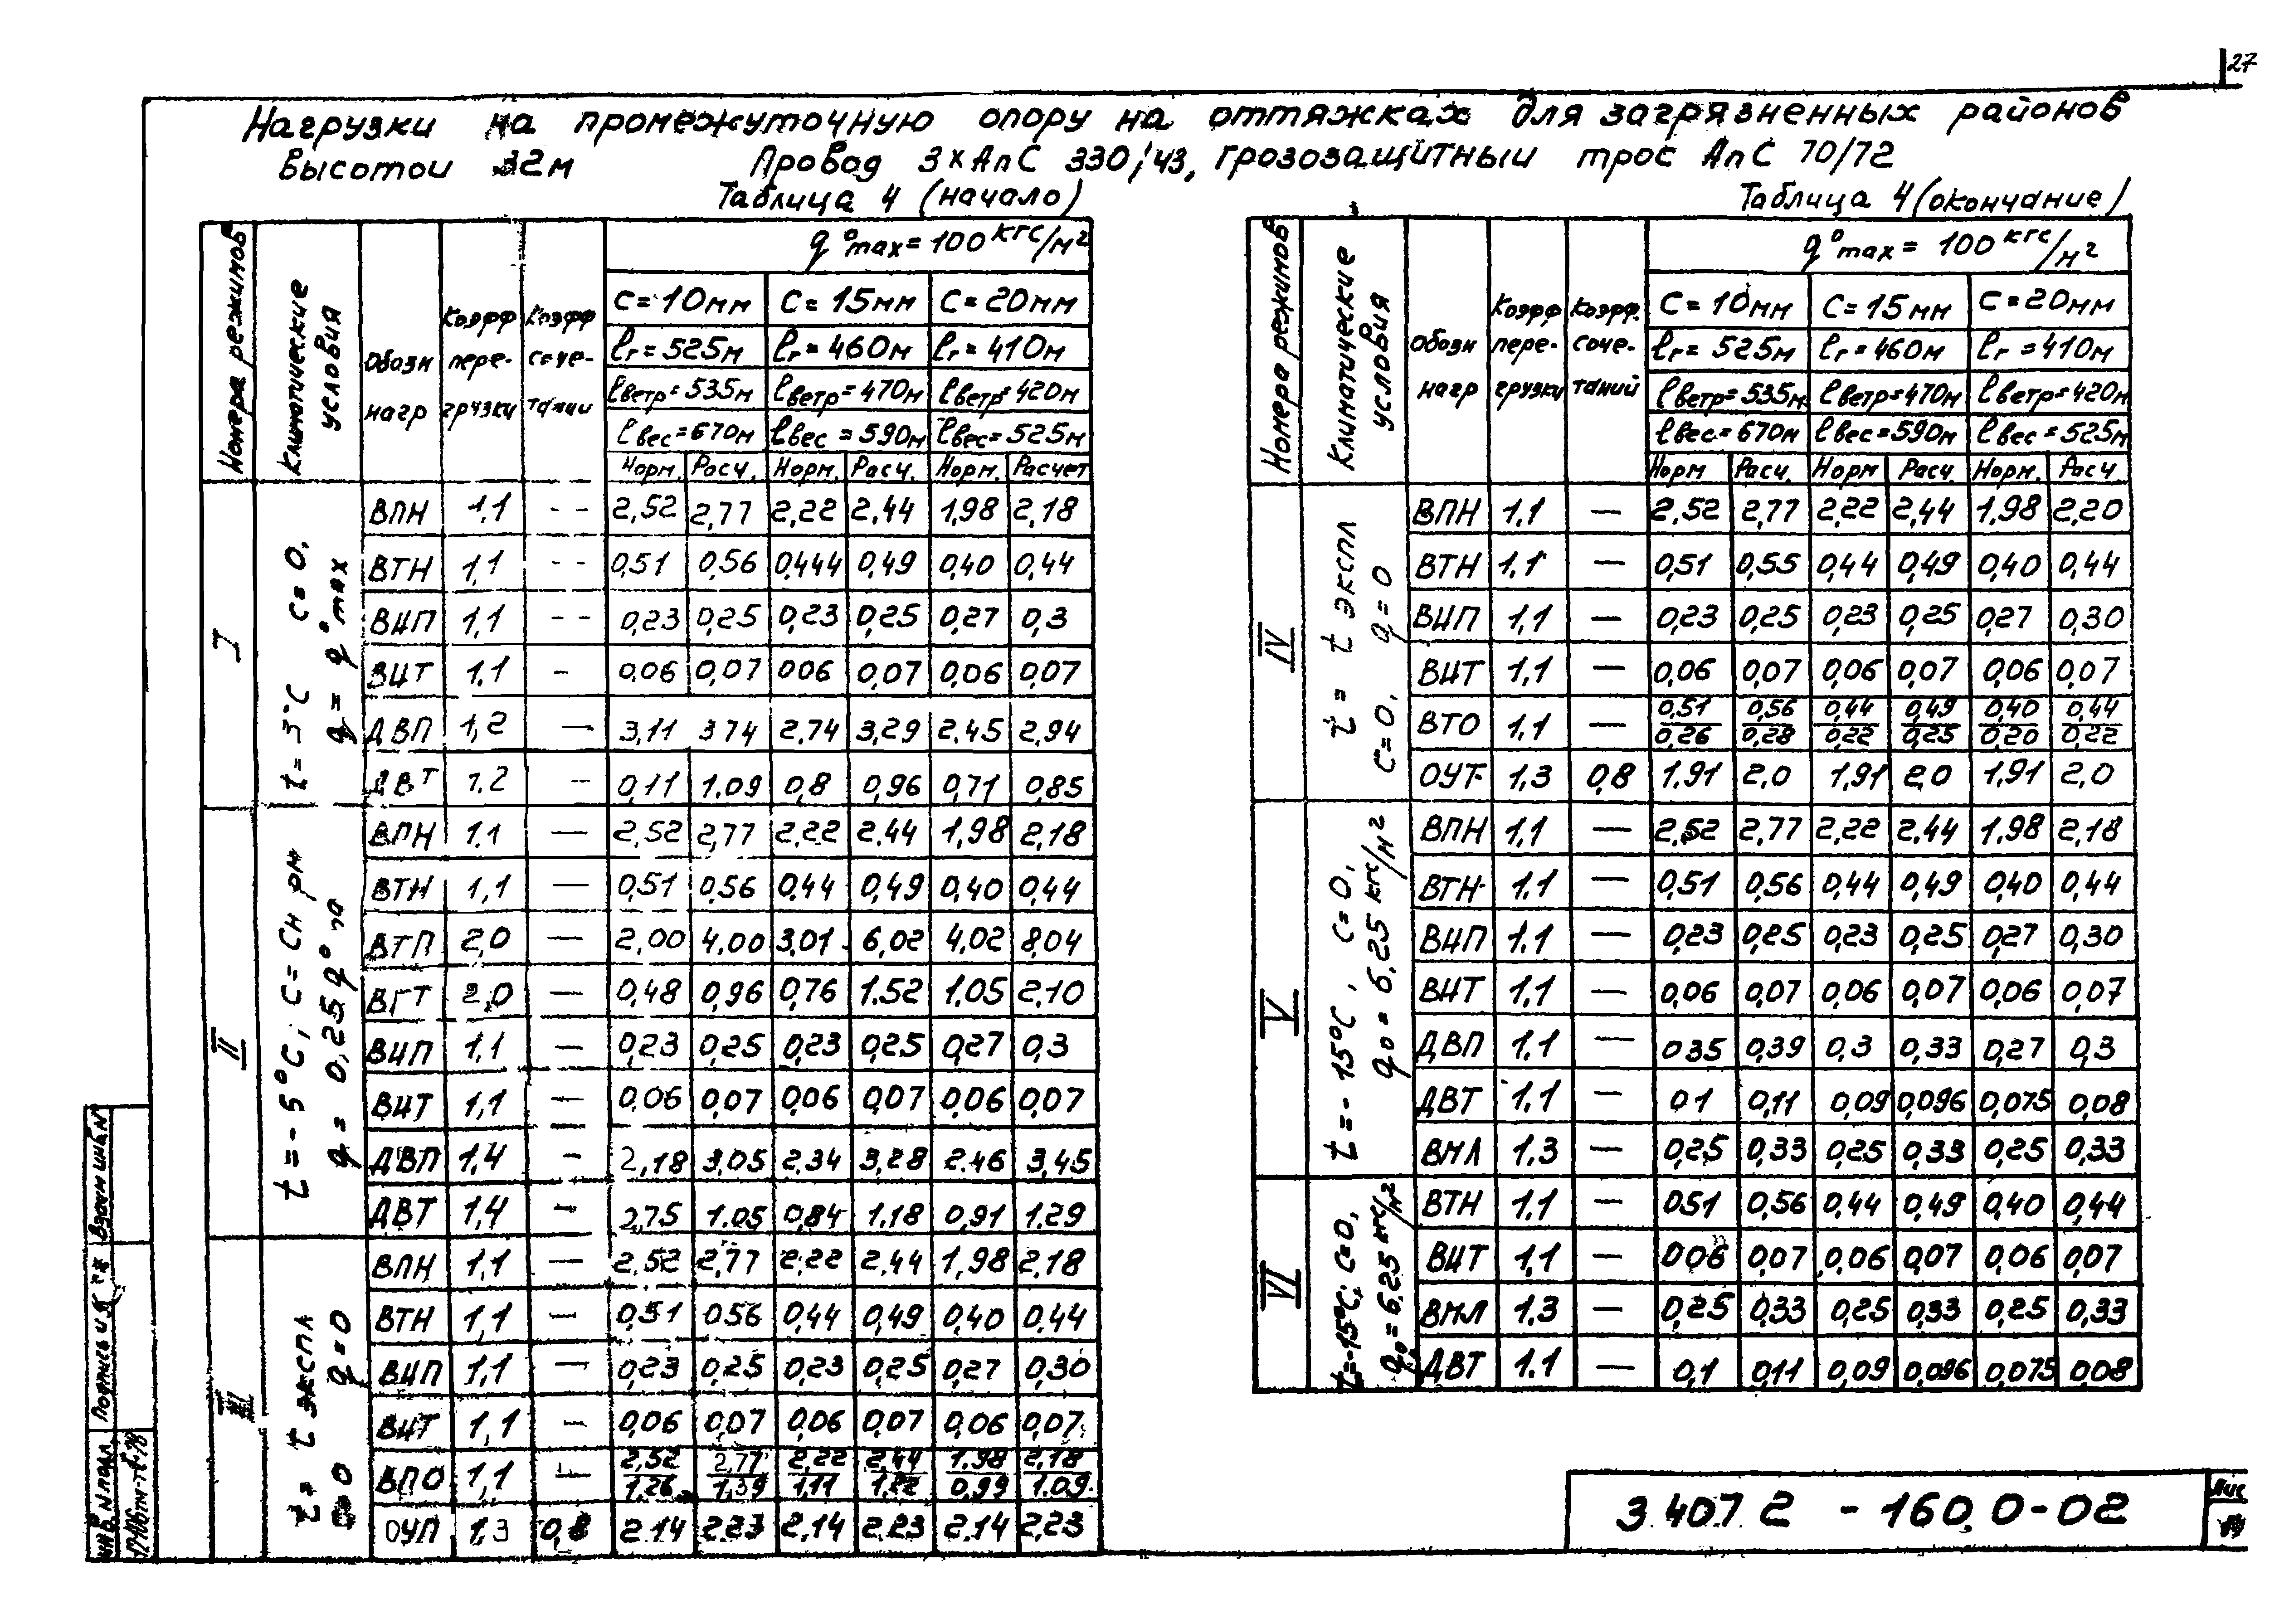 27
Нагрузки на промежуточную опору на оттяжках для загрязненных районов
высотой 32м Провод 3×АпС 330/43, грозозащитный трос АпС 70/72
Таблица 4 (начало)
Номера режимов | Климатические условия | Обозн нагр | Коэфф пере- грузки | Коэфф соче- таний | q°max = 100 кгс/м²
c = 10мм | c = 15мм | c = 20мм
ℓг = 525м | ℓг = 460м | ℓг = 410м
ℓветр = 535м | ℓветр = 470м | ℓветр = 420м
ℓвес = 670м | ℓвес = 590м | ℓвес = 525м
Норм. | Расч. | Норм. | Расч. | Норм. | Расчет
I | t = -3°C c = 0. q = q°max
ВПН | 1,1 | -- | 2,52 | 2,77 | 2,22 | 2,44 | 1,98 | 2,18
ВТН | 1,1 | -- | 0,51 | 0,56 | 0,444 | 0,49 | 0,40 | 0,44
ВИП | 1,1 | -- | 0,23 | 0,25 | 0,23 | 0,25 | 0,27 | 0,3
ВИТ | 1,1 | - | 0,06 | 0,07 | 006 | 0,07 | 0,06 | 0,07
ДВП | 1,2 | — | 3,11 | 3 74 | 2,74 | 3,29 | 2.45 | 2,94
ДВТ | 1.2 | - | 0,11 | 1.09 | 0,8 | 0,96 | 0,71 | 0,85
II | t = -5°C; c = cн рм q = 0,25 q°
ВПН | 1.1 | — | 2,52 | 2,77 | 2,22 | 2.44 | 1,98 | 2,18
ВТН | 1,1 | — | 0,51 | 0,56 | 0,44 | 0,49 | 0,40 | 0,44
ВТП | 2,0 | — | 2,00 | 4,00 | 3,01 | 6,02 | 4,02 | 8,04
ВГТ | 2,0 | — | 0,48 | 0,96 | 0,76 | 1.52 | 1.05 | 2,10
ВИП | 1,1 | — | 0,23 | 0,25 | 0,23 | 0,25 | 0,27 | 0,3
ВИТ | 1,1 | — | 0,06 | 0,07 | 0,06 | 0,07 | 0,06 | 0,07
ДВП | 1,4 | - | 2,18 | 3,05 | 2,34 | 3,28 | 2.46 | 3,45
ДВТ | 1,4 | - | 2,75 | 1.05 | 0,84 | 1.18 | 0,91 | 1.29
III | t = t экспл c=0 q=0
ВПН | 1,1 | — | 2.52 | 2,77 | 2.22 | 2.44 | 1,98 | 2,18
ВТН | 1,1 | — | 0,51 | 056 | 0,44 | 0,49 | 0,40 | 0,44
ВИП | 1,1 | — | 0,23 | 0,25 | 0,23 | 0,25 | 0,27 | 0,30
ВИТ | 1,1 | — | 0,06 | 0,07 | 0,06 | 0,07 | 0,06 | 0,07
ВПО | 1,1 | — | 2,52/1.26 | 2,77/1,39 | 2,22/1,11 | 2,44/1,22 | 1.98/0,99 | 2,18/1.09
ОУП | 1.3 | 0,8 | 2.14 | 2.23 | 2,14 | 2.23 | 2,14 | 2,23
Таблица 4 (окончание)
Номера режимов | Климатические условия | Обозн нагр | Коэфф пере- грузки | Коэфф. соче- таний | q°max = 100 кгс/м²
c = 10мм | c = 15мм | c = 20мм
ℓг = 525м | ℓг = 460м | ℓг = 410м
ℓветр = 535м | ℓветр = 470м | ℓветр = 420м
ℓвес = 670м | ℓвес = 590м | ℓвес = 525м
Норм | Расч. | Норм | Расч. | Норм. | Расч.
IV | t = t экспл c=0, q=0
ВПН | 1.1 | — | 2.52 | 2,77 | 2,22 | 2,44 | 1,98 | 2,20
ВТН | 1.1 | — | 0,51 | 0,55 | 0,44 | 0,49 | 0,40 | 0,44
ВИП | 1,1 | — | 0,23 | 0,25 | 0,23 | 0,25 | 0,27 | 0,30
ВИТ | 1,1 | — | 0,06 | 0,07 | 0,06 | 0,07 | 0,06 | 0,07
ВТО | 1,1 | — | 0,51/0,26 | 0,56/0,28 | 0,44/0,22 | 0,49/0,25 | 0,40/0,20 | 0,44/0,22
ОУТ | 1,3 | 0,8 | 1.91 | 2.0 | 1,91 | 2.0 | 1,91 | 2,0
V | t = -15°C, c=0, q₀ = 6,25 кгс/м²
ВПН | 1,1 | — | 2,52 | 2,77 | 2,22 | 2.44 | 1,98 | 2,18
ВТН | 1.1 | — | 0,51 | 0,56 | 0,44 | 0,49 | 0,40 | 0,44
ВИП | 1.1 | — | 0,23 | 0,25 | 0,23 | 0,25 | 0,27 | 0,30
ВИТ | 1,1 | — | 0,06 | 0,07 | 0,06 | 0,07 | 0,06 | 0,07
ДВП | 1.1 | — | 035 | 0,39 | 0,3 | 0,33 | 0,27 | 0,3
ДВТ | 1.1 | — | 0.1 | 0,11 | 0,09 | 0,096 | 0,075 | 0,08
ВМЛ | 1.3 | — | 0,25 | 0,33 | 0,25 | 0,33 | 0,25 | 0,33
VI | t=-15°C, c=0, q₀=6,25 кгс/м²
ВТН | 1.1 | — | 051 | 0,56 | 0,44 | 0,49 | 0,40 | 0,44
ВИТ | 1,1 | — | 006 | 0,07 | 0,06 | 0,07 | 0,06 | 0,07
ВМЛ | 1.3 | — | 0,25 | 0,33 | 0,25 | 0,33 | 0,25 | 0,33
ДВТ | 1.1 | — | 0,1 | 0,11 | 0,09 | 0,096 | 0,075 | 0,08
Инв. N подл. Подпись и Взам инв N
3.407.2 - 160.0-02
Лис